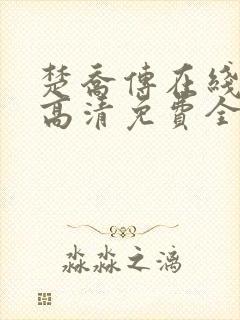 楚喬傳在綫
高清免費全
淼淼之漓